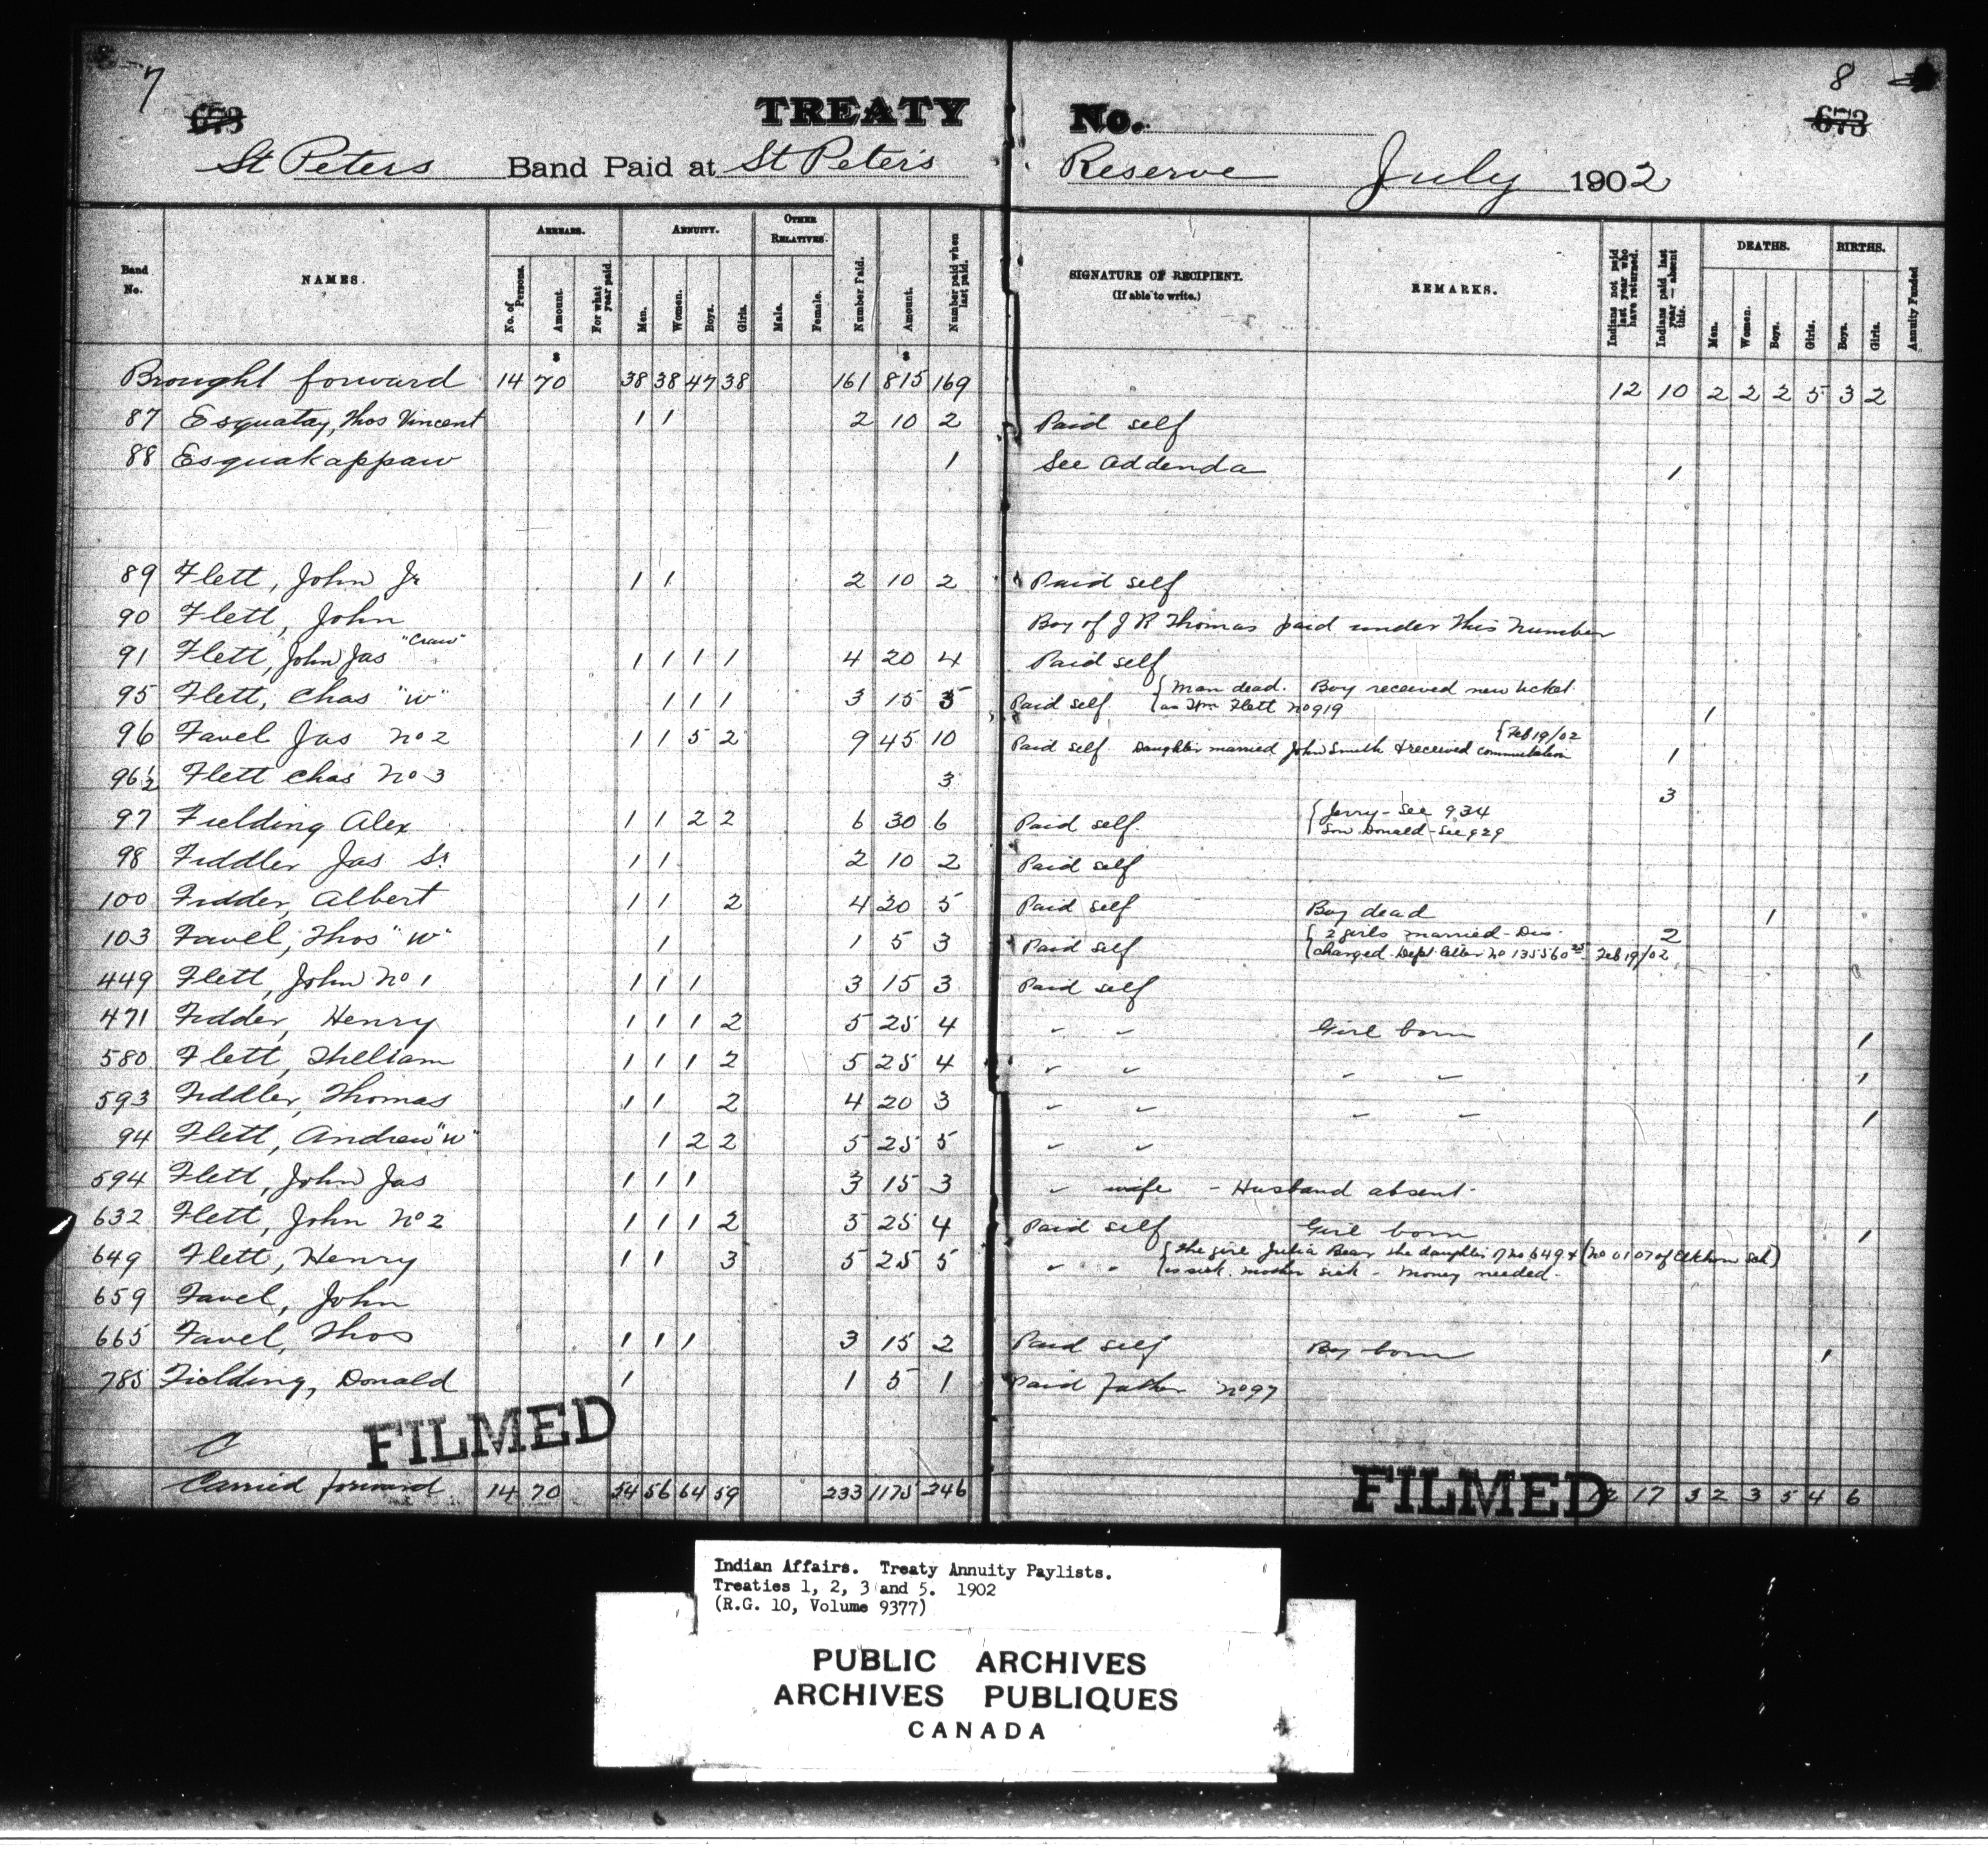 7
8
673
TREATY No.
673
St Peters Band Paid at St Peter's Reserve July 1902
Band No.
NAMES.
ARREARS.
No. of Persons.
Amount.
For what year paid.
ANNUITY.
Men.
Women.
Boys.
Girls.
OTHER RELATIVES.
Male.
Female.
Number Paid.
Amount.
Number paid when last paid.
SIGNATURE OF RECIPIENT.
(If able to write.)
REMARKS.
Indians not paid last year who have returned.
Indians paid last year — absent this.
DEATHS.
Men.
Women.
Boys.
Girls.
BIRTHS.
Boys.
Girls.
Annuity Funded
$ $
Brought forward 14 70 38 38 47 38 161 815 169 12 10 2 2 2 5 3 2
87 Esquatay, Thos Vincent 1 1 2 10 2 Paid self
88 Esquakappaw 1 See Addenda 1
89 Flett, John Jr 1 1 2 10 2 Paid self
90 Flett, John Boy of J R Thomas paid under this number
91 Flett, John Jas "Craw" 1 1 1 1 4 20 4 Paid self
95 Flett, Chas "W" 1 1 1 3 15 3 Paid self { Man dead. Boy received new ticket
as Wm Flett No 919 1
96 Favel Jas No 2 1 1 5 2 9 45 10 Paid self. Daughter married John Smith & received commutation { Feb 19/02 1
96½ Flett Chas No 3 3 3
97 Fielding Alex 1 1 2 2 6 30 6 Paid self. { Jerry - See 934
Son Donald - See 929
98 Fiddler Jas Sr 1 1 2 10 2 Paid self
100 Fidder, Albert 1 1 2 4 20 5 Paid self Boy dead 1
103 Favel, Thos "W" 1 1 5 3 Paid self { 2 girls married - Dis- 2
charged. Dept. letter No 135560 25 Feb 19/02
449 Flett, John No 1 1 1 1 3 15 3 Paid self
471 Fidder, Henry 1 1 1 2 5 25 4 " " Girl born 1
580 Flett, William 1 1 1 2 5 25 4 " " " " 1
593 Fiddler, Thomas 1 1 2 4 20 3 " " " " 1
94 Flett, Andrew "W" 1 2 2 5 25 5 " "
594 Flett, John Jas 1 1 1 3 15 3 " wife - Husband absent.
632 Flett, John No 2 1 1 1 2 5 25 4 Paid self Girl born 1
649 Flett, Henry 1 1 3 5 25 5 " " { The girl Julia Bear the daughter of No 649 & (No 0107 of Elkhorn Sch)
is sick. mother sick - money needed.
659 Favel, John
665 Favel, Thos 1 1 1 3 15 2 Paid self Boy born 1
785 Fielding, Donald 1 1 5 1 Paid father No 97
C
FILMED
FILMED
Carried forward 14 70 54 56 64 59 233 1175 246 12 17 3 2 3 5 4 6
Indian Affairs. Treaty Annuity Paylists.
Treaties 1, 2, 3 and 5. 1902
(R.G. 10, Volume 9377)
PUBLIC ARCHIVES
ARCHIVES PUBLIQUES
CANADA